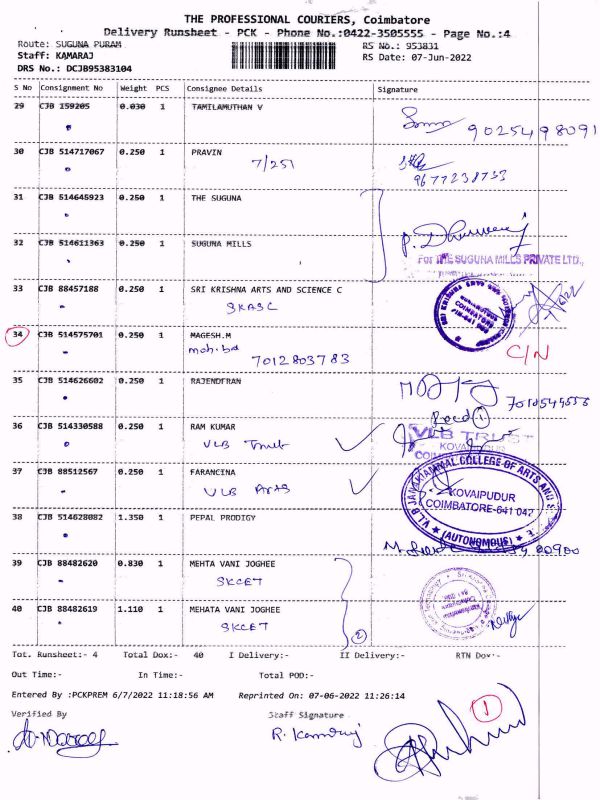 THE PROFESSIONAL COURIERS, Coimbatore
Delivery Runsheet - PCK - Phone No.:0422-3505555 - Page No.:4
Route: SUGUNA PURAM
RS No.: 953831
Staff: KAMARAJ
RS Date: 07-Jun-2022
DRS No.: DCJB95383104
S No Consignment No Weight PCS Consignee Details Signature
29 CJB 159205 0.030 1 TAMILAMUTHAN V
9025498091
30 CJB 514717067 0.250 1 PRAVIN
7/251
9677238733
31 CJB 514645923 0.250 1 THE SUGUNA
32 CJB 514611363 0.250 1 SUGUNA MILLS
For THE SUGUNA MILLS PRIVATE LTD.,
33 CJB 88457188 0.250 1 SRI KRISHNA ARTS AND SCIENCE C
SKASC
COIMBATORE
34 CJB 514575701 0.250 1 MAGESH.M
7012803783
C/N
35 CJB 514626602 0.250 1 RAJENDFRAN
36 CJB 514330588 0.250 1 RAM KUMAR
VLB Trust
VLB TRUST
37 CJB 88512567 0.250 1 FARANCINA
VLB Arts
V.L.B JANAKIAMMAL COLLEGE OF ARTS AND
KOVAIPUDUR
COIMBATORE-641 042
(AUTONOMOUS)
38 CJB 514628082 1.350 1 PEPAL PRODIGY
39 CJB 88482620 0.830 1 MEHTA VANI JOGHEE
SKCET
40 CJB 88482619 1.110 1 MEHATA VANI JOGHEE
SKCET
2
Tot. Runsheet:- 4 Total Dox:- 40 I Delivery:- II Delivery:- RTN Dox:-
Out Time:- In Time:- Total POD:-
Entered By :PCKPREM 6/7/2022 11:18:56 AM Reprinted On: 07-06-2022 11:26:14
Verified By Staff Signature
R. Kamaraj
1